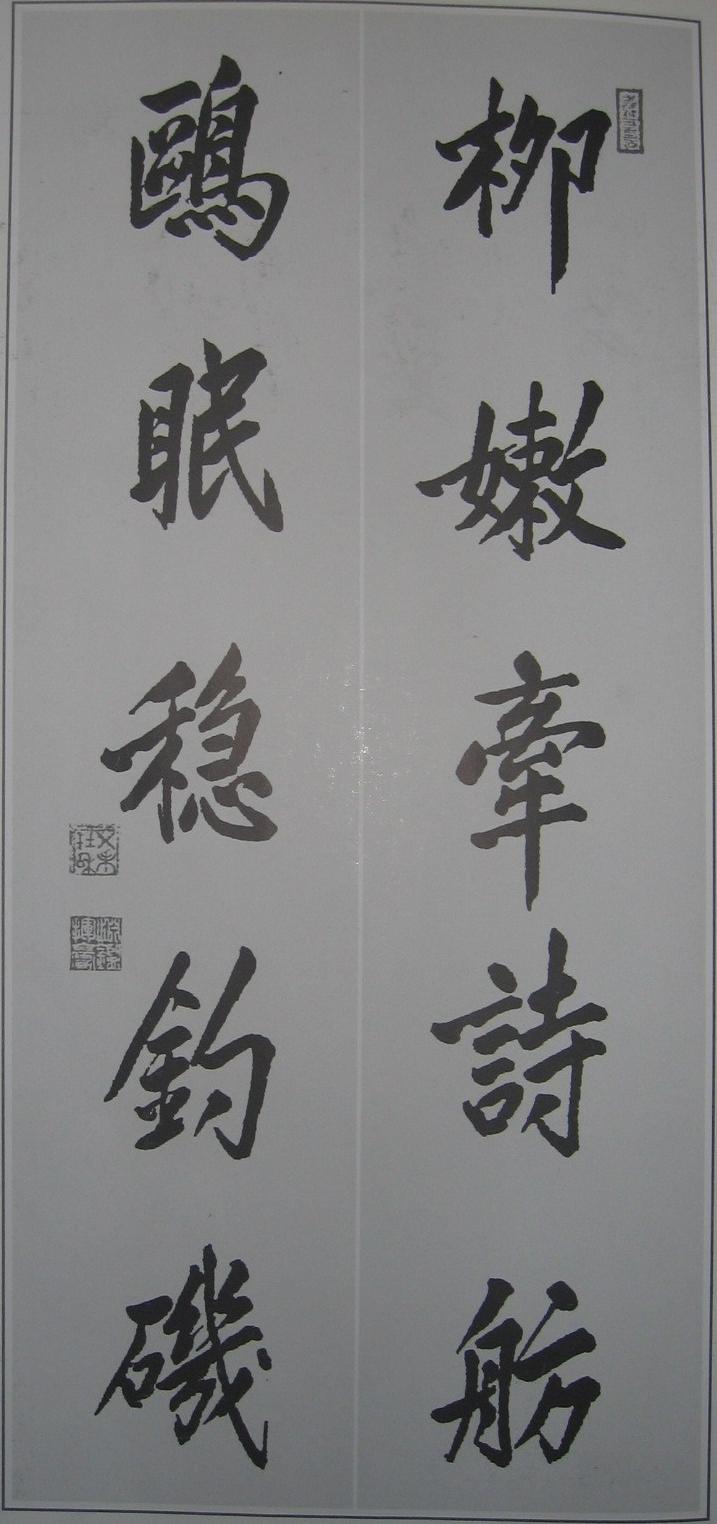 柳嫩牽詩舫
鷗眠稳釣磯